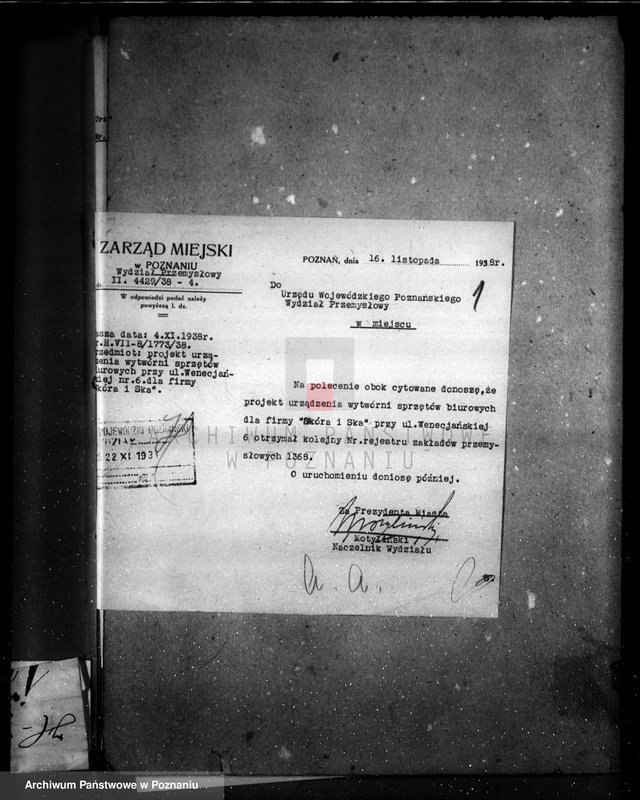 ZARZĄD MIEJSKI
w POZNANIU
Wydział Przemysłowy
II. 4429/38 - 4.
W odpowiedzi podać należy
powyższą l. dz.
POZNAŃ, dnia 16. listopada 1938r.
1
Do
Urzędu Wojewódzkiego Poznańskiego
Wydział Przemysłowy
w miejscu
asza data: 4.XI.1938r.
r.H.VII-8/1773/38.
rzedmiot: projekt urzą-
zenia wytwórni sprzętów
iurowych przy ul.Wenecjań-
iej nr.6.dla firmy
kóra i Ska".
22 XI 193
Na polecenie obok cytowane donoszę,że
projekt urządzenia wytwórni sprzętów biurowych
dla firmy "Skóra i Ska" przy ul.Wenecjańskiej
6 otrzymał kolejny Nr.rejestru zakładów przemy-
słowych 1368.
O uruchomieniu doniosę później.
Za Prezydenta Miasta
Motyliński
Motyliński
Naczelnik Wydziału
a. a.
ARCHIWUM PAŃSTWOWE
W POZNANIU
Archiwum Państwowe w Poznaniu